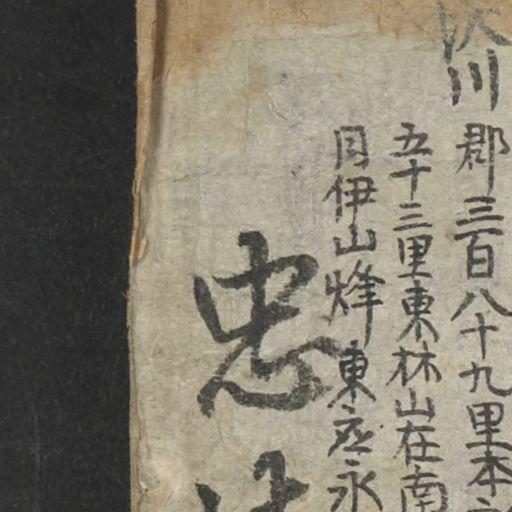 沃川郡三百八十九里本
五十三里東林山在南
月伊山烽東应永
忠